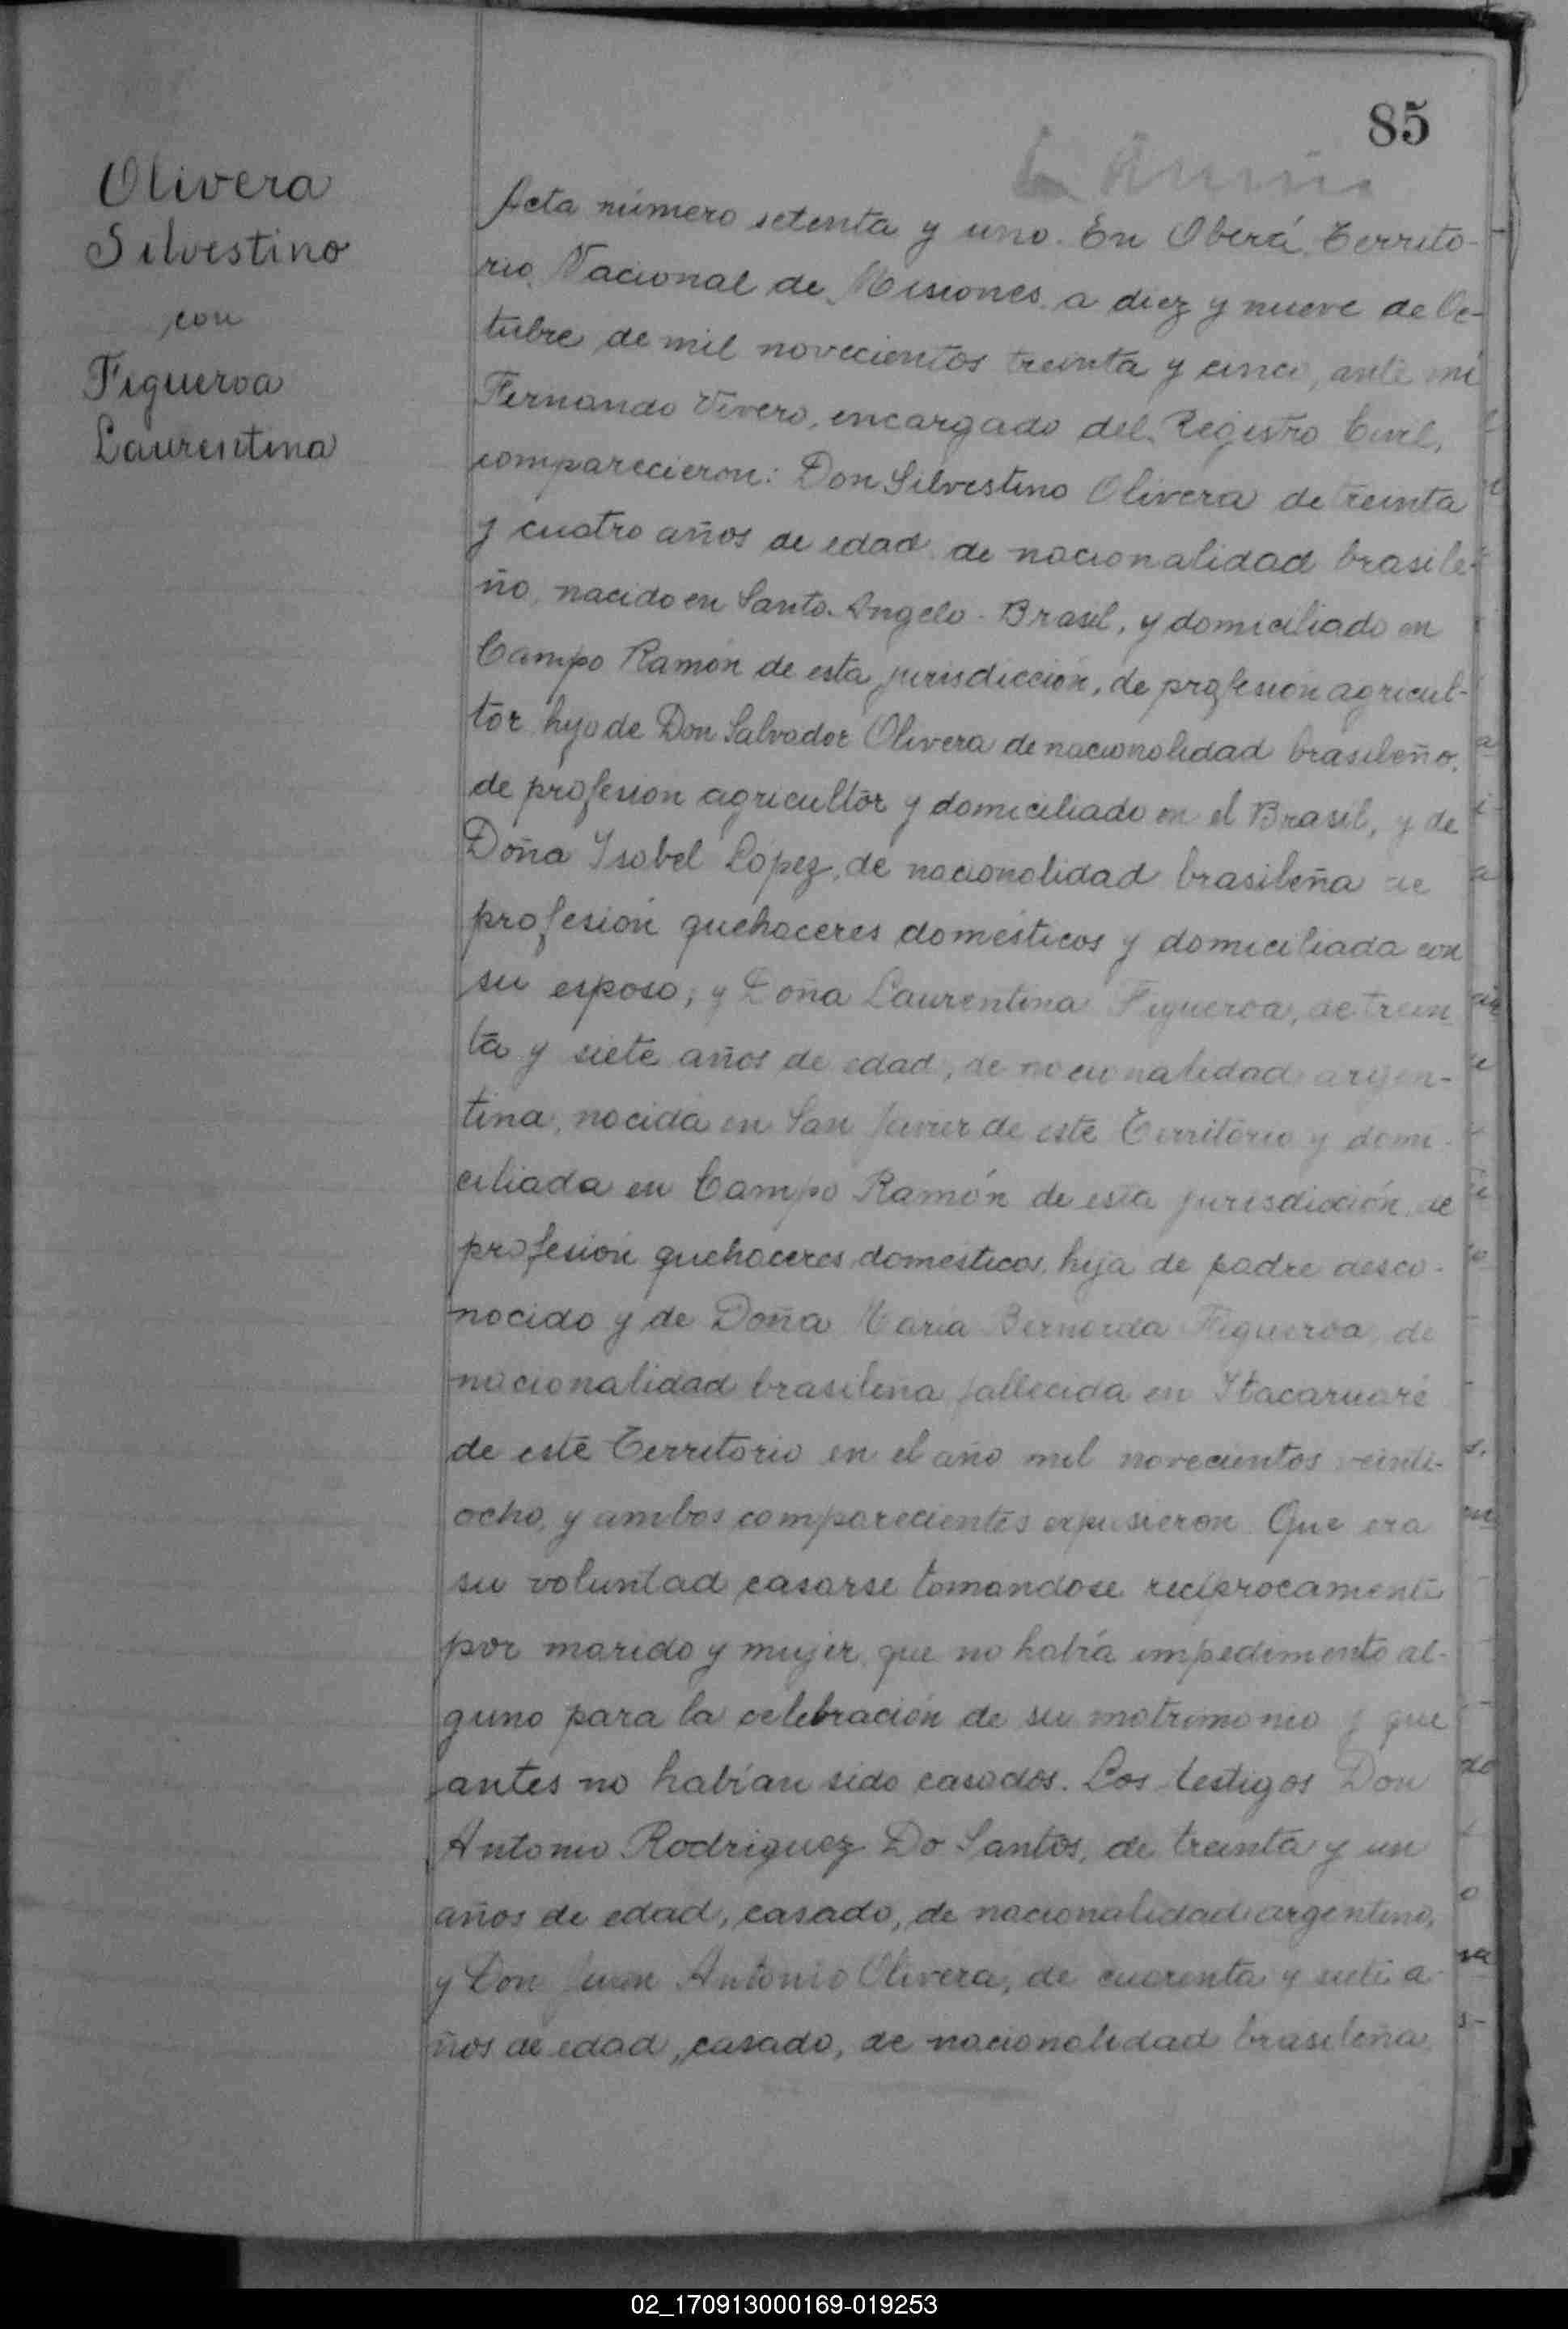 85
Olivera
Silvestino
con
Figueroa
Laurentina
Acta número setenta y uno. En Oberá, Territo-
rio Nacional de Misiones a diez y nueve de Oc-
tubre de mil novecientos treinta y cinco, ante mí
Fernando Vivero, encargado del Registro Civil,
comparecieron: Don Silvestino Olivera de treinta
y cuatro años de edad, de nacionalidad brasile-
ño, nacido en Santo Angelo - Brasil, y domiciliado en
Campo Ramón de esta jurisdicción, de profesión agricul-
tor hijo de Don Salvador Olivera de nacionalidad brasileño,
de profesión agricultor y domiciliado en el Brasil, y de
Doña Isabel López, de nacionalidad brasileña de
profesión quehaceres domésticos y domiciliada con
su esposo; y Doña Laurentina Figueroa, de trein
ta y siete años de edad, de nacionalidad argen-
tina, nacida en San Javier de este Territorio y domi-
ciliada en Campo Ramón de esta jurisdicción, de
profesión quehaceres domésticos, hija de padre desco-
nocido y de Doña María Bernarda Figueroa, de
nacionalidad brasileña fallecida en Itacaruaré
de este Territorio en el año mil novecientos veinti-
ocho, y ambos comparecientes expusieron: Que era
su voluntad casarse tomandose recíprocamente
por marido y mujer, que no había impedimento al-
guno para la celebración de su matrimonio y que
antes no habían sido casados. Los testigos Don
Antonio Rodriguez Do Santos, de treinta y un
años de edad, casado, de nacionalidad argentino,
y Don Juan Antonio Olivera, de cuarenta y siete a-
ños de edad, casado, de nacionalidad brasileña
02_170913000169-019253